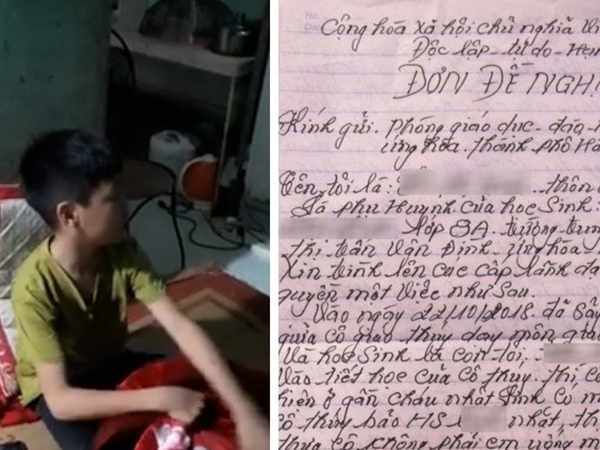 Cộng hòa xã hội chủ nghĩa Vi
Độc lập - tự do - Hạn
ĐƠN ĐỀ NGHỊ
Kính gửi. phòng giáo dục - đào
ứng hòa. thành phố Hà
Tên tôi là: thôn
Là phụ Huynh của học Sinh:
lớp 8A. trường trun
thị trấn Vân Định, ứng hòa
Xin trình lên các cấp lãnh đạ
quyền một việc như sau.
Vào ngày 22/10/2018 đã Sảy
giữa cô giáo thúy dạy môn giáo
và học Sinh là con tôi:
vào tiết học của cô thúy. thì có
hiện ở gần cháu nhật Sinh có m
cô thúy bảo HS nhật, th
thưa cô không phải em uống m